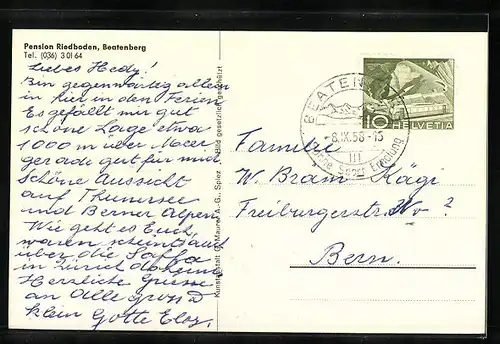 Pension Riedboden, Beatenberg
Tel. (036) 3 01 64
Liebes Hedy!
Bin gegenwärtig allein
in hier in den Ferien
Es gefällt mir gut
schöne Lage etwa
1000 m über Meer
gerade gut für mich
Schöne Aussicht
auf Thunersee
und Berner Alpen
Wie geht es Euch,
waren scheints auch
über die Saffa
in Zürich
Herzliche Grüsse
an Alle gross &
klein Gotte
Kunstanstalt G. Maurer A.-G., Spiez
Bild gesetzlich geschützt
BEATENBERG
-8.IX.58-15
10 HELVETIA
Familie
W. Bram Kägi
Freiburgerstr. No ?
Bern.